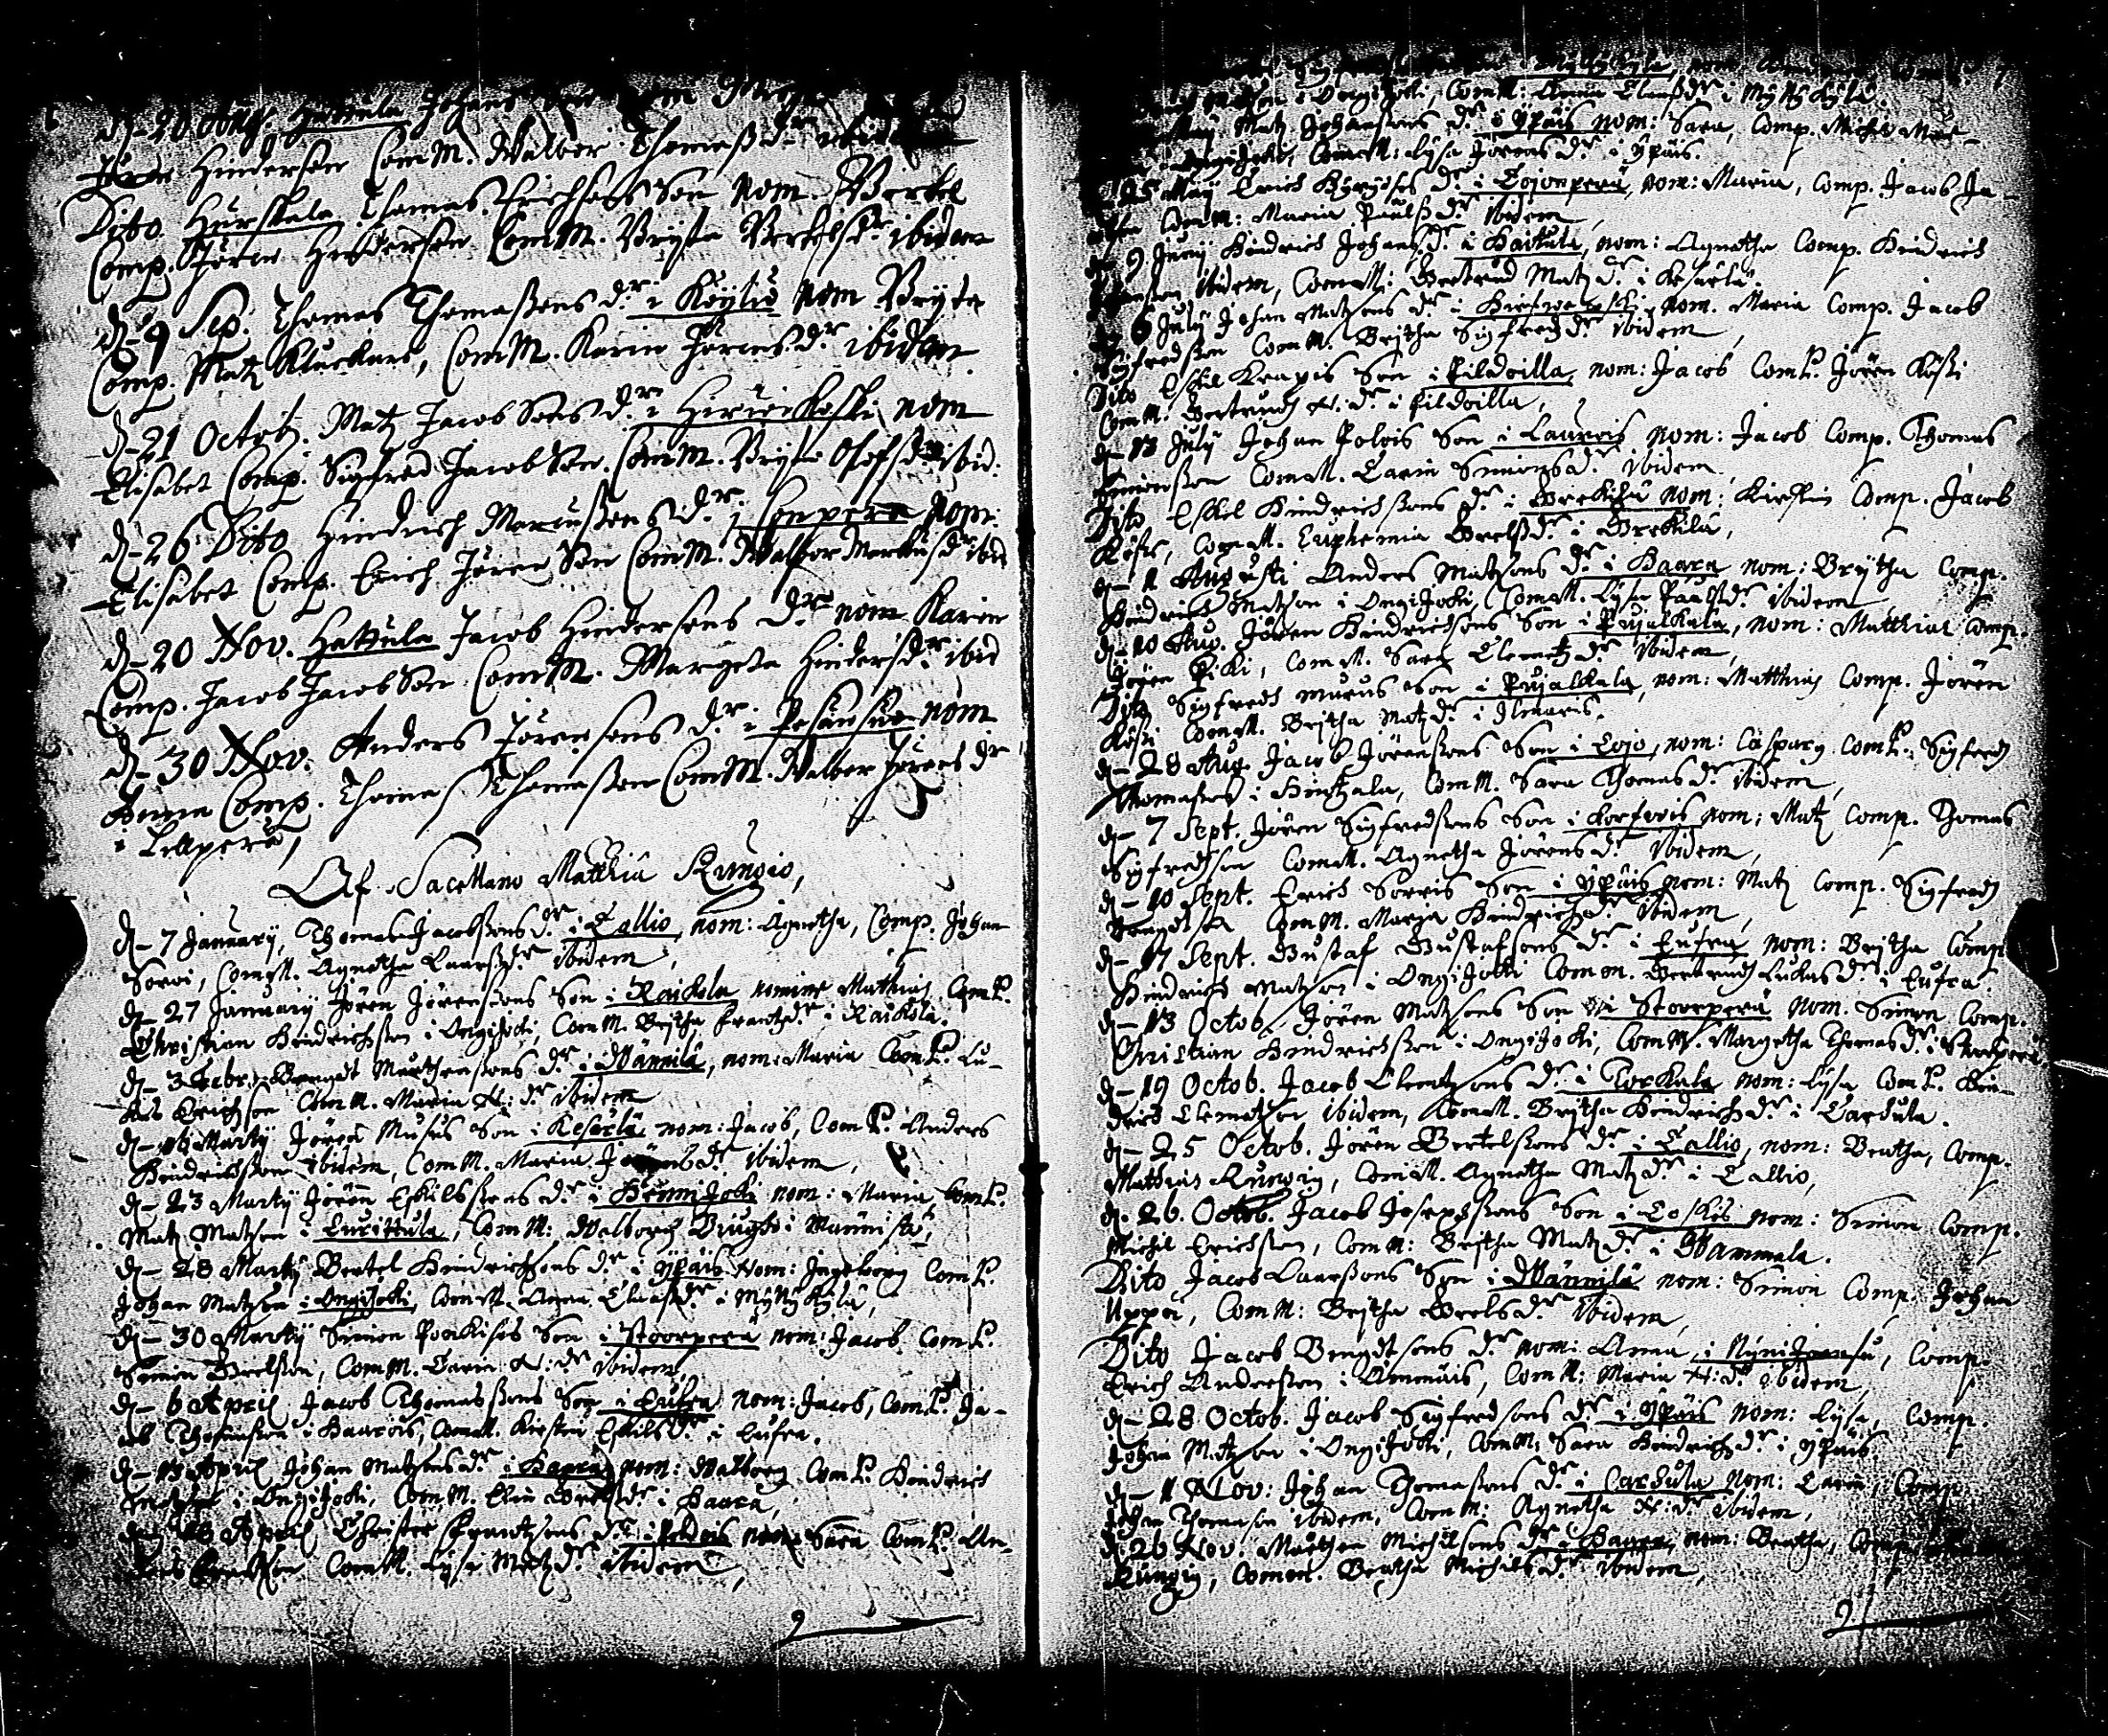 d. 20 Aug. Hattula Johans
Hindersson Com M. Walbor Thomæ dr
Dito Hurskala Thomas Erichssons Son nom Bertel
Comp. Jören Hindersson Com M. Bryta Bertels dr ibidem
d. 9 Sep. Thomas Thomassons dr i Köyliö nom Bryta
Comp. Matz Kluckare, Com M. Karin Jörens dr ibidem.
d. 21 Octob. Matz Jacobsons dr i Hirwikoski nom
Elisabet Comp. Sigfred Jacobson. Com M. Bryta Olofs dr ibid:
d. 26 Dito Hindrich Marcussons dr i Lonperä nom.
Elisabet Comp. Erich Jörenson Com M. Walbor Markus dr ibid
d. 20 Nov. Hattula Jacob Hindersons dr nom Karin
Comp. Jacob Jacobson Com M. Margeta Hinders dr ibid
d. 30 Nov. Anders Jörensons dr i Pesänsuo nom
Anna Comp. Thomas Thomasson Com M. Walbor Jörens dr
i Lillperä,
Af Sacellano Matthia Rungio,
d. 7 January, Thomas Jacobssons dr i Tallio, nom: Agnetha, Comp. Johan
Sorri, Com M. Agnetha Laarss dr ibidem,
d. 27 January Jören Jörenssons Son i Raikola nomine Mathias, Com P.
Christian Hindrichsson i Ongijoki, Com M. Brjtha Frantz dr i Raikola.
d. 3 Febr. Bengdt Mårthenssons dr i Wännilä, nom: Maria Com P. Lu-
kas Erichson Com M. Maria N: dr ibidem
d. 16 Marty Jören Musus Son i Kesärlä nom: Jacob, Com P. Anders
Hindrichsson ibidem, Com M. Maria Jörens dr ibidem,
d. 23 Marty Jören Eskilssons dr i Hennijoki nom: Maria Com P.
Matz Matzson i Lurittula, Com M: Walborg i Männistö,
d. 28 Marty Bertel Hindrichsons dr i Ypäis Nom: Ingeborg Com P.
Johan Matzson i Ongijoki, Com M. Anna Clæss dr i Myllykylä,
d. 30 Marty Simon Son i Stoorperä nom: Jacob Com P.
Simon Grelsson, Com M. Carin N: dr ibidem,
d. 6 April Jacob Thomassons Son i Eufra nom: Jacob, Com P. Ja-
cob Thomasson i Haarois, Com M. Kirstin Eskils dr i Eufra.
d. 13 April Johan Matzsons dr i Haara nom: Walborg Com P. Hindrich
Matzson i Ongijoki, Com M. Elin Grels dr i Haara,
April Christer Frantzsons dr i nom Sara Com P. An-
Com M. Lysa Matz dr ibidem,
i Myllykylä, nom
i Ongijoki, Com M: Anna Clæss dr i Myllykylä.
May Matz Johanssons dr i Ypäis nom: Sara, Comp. Michel Mat-
Ongijoki, Com M: Lysa Jörens dr i Ypäis.
25 May Erich dr i Lojonperä, nom: Maria, Comp. Jacob Ja-
Com M: Maria Påuls dr ibidem,
9 Juny Hindrich Johans dr i Haitula, nom: Agnetha Comp. Hindrich
ibidem, Com M: Gertrud Matz dr i Kesärlä.
6 July Johan Matzsons dr i Hirfwikoski, nom. Maria Comp. Jacob
Sigfredsson Com M. Brjtha Sigfredz dr ibidem,
Dito Eskel Krapis Son i Pildoilla, nom: Jacob Com P. Jören Kåsti
Com M. Gertrudh N: dr i Pildoilla,
d. 13 July Johan Polvis Son i Laurois nom: Jacob Comp. Thomas
Simonsson Com M. Carin Simons dr ibidem,
Dito Eskel Hindrichssons dr i Greckilä nom: Kirstin Comp. Jacob
Com M. Euphemia Grels dr i Greckilä,
d. 1 Augusti Anders Matzsons dr i Haara nom: Brytha Comp.
Hindrich Matzson i Ongijoki, Com M. Lysa Påals dr ibidem
d. 10 Aug. Jören Hindrichsons Son i Pujalkala, nom: Matthias Comp.
Jören Piki, Com M. Sara Clemetz dr ibidem,
Dito Sigfredh Murus Son i Pujalkala, nom: Matthias Comp. Jören
Com M. Brjtha Matz dr i Ilmaris.
d. 28 Aug. Jacob Jörenssons Son i Lojo, nom: Caspary Com P. Sigfredh
Thomasson i Hintzala, Com M. Sara Thomas dr ibidem,
d. 7 Sept. Jören Sigfredssons Son i Korfvois nom: Matz Comp. Thomas
Sigfredsson Com M. Agnetha Jörens dr ibidem,
d. 10 Sept. Erich Sorris Son i Ypäis nom: Matz Comp. Sigfredh
Com M. Marja Hindrichs dr ibidem,
d. 17 Sept. Gustaf Gustafsons dr i Eufra nom: Brjtha Comp
Hindrich Matzson i Ongijoki Com M. Gertrudh Lukas dr i Eufra.
d. 13 Octob. Jören Matzsons Son i Stoorperä nom. Simon Comp.
Christian Hindrichsson i Ongijoki, Com M. Margetha Thomas dr i Stoorperä
d. 19 Octob. Jacob Clemetzsons dr i Torkala nom: Lysa Com P. Hin-
drich Clemetzson ibidem, Com M. Brjtha Hindrichs dr i Cardula.
d. 25 Octob. Jören Bertelssons dr i Tallio, nom: Beatha, Comp.
Mathias Rungig, Com M. Agnetha Matz dr i Tallio,
d. 26. Octob. Jacob Josephssons Son i Coskis nom: Simon Comp.
Michil Erichsson, Com M: Brjtha Matz dr i Wammala.
Dito Jacob Laarssons Son i Wännilä nom: Simon Comp. Johan
Uppa, Com M: Brjtha Grels dr ibidem,
Dito Jacob Bengdtsons dr nom: Anna, i Nynijoensu, Comp.
Erich Andersson i Ammäis, Com M: Maria N: dr ibidem,
d. 28 Octob. Jacob Sigfredsons dr i Ypäis nom: Lysa, Comp.
Johan Matzson i Ongijoki, Com M: Sara Hindrichs dr i Ypäis,
d. 1 Nov: Johan Thomassons dr i Cardula nom: Carin, Comp.
Johan Thomason ibidem, Com M: Agnetha N: dr ibidem,
d. 26 Nov. Mårthen Michilsons dr i Haara, nom: Beatha, Comp.
Rungig, Com M. Beatha Michils dr ibidem,